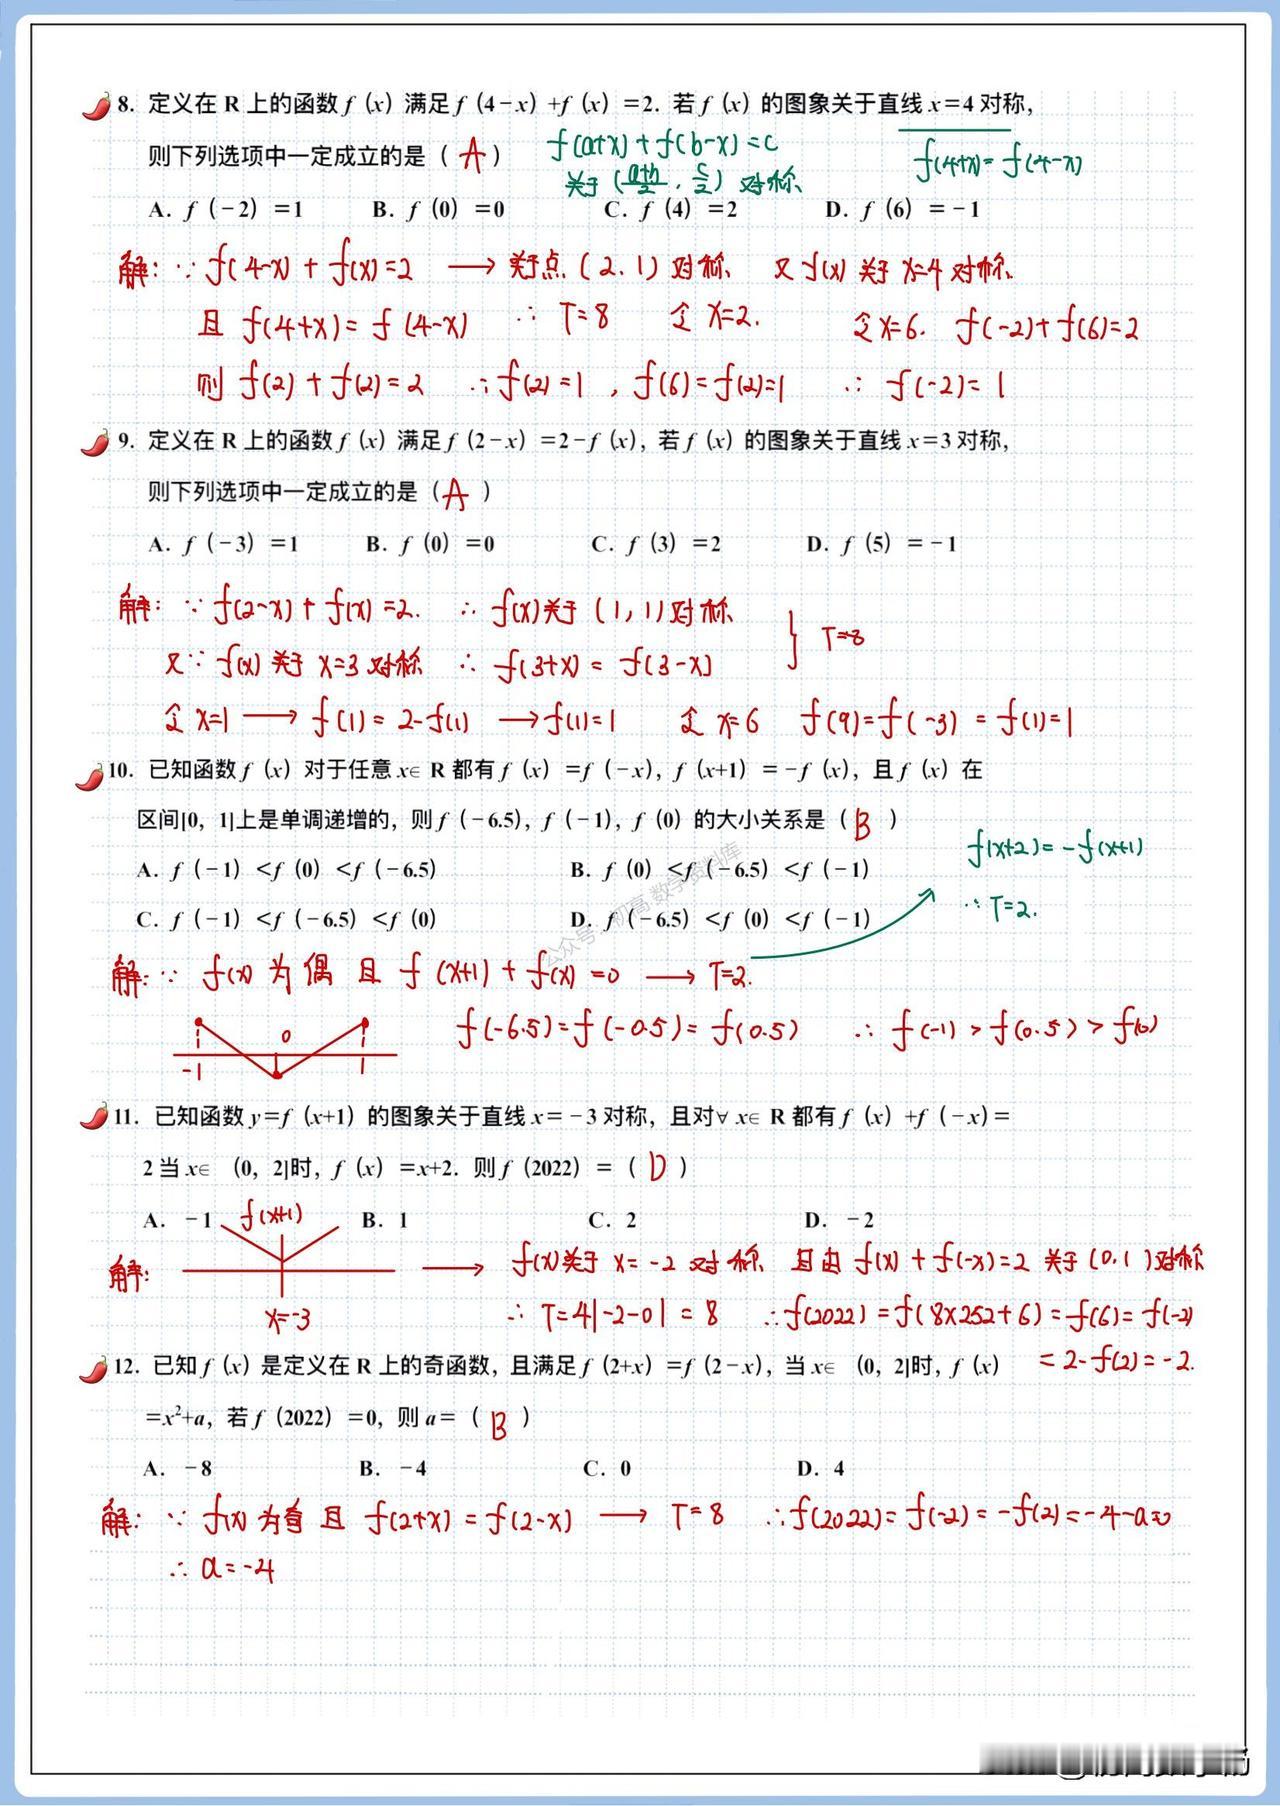 8. 定义在 R 上的函数 f（x）满足 f（4－x）+f（x）=2. 若 f（x）的图象关于直线 x=4 对称，
f(a+x)+f(b-x)=c
f(4+x)=f(4-x)
则下列选项中一定成立的是（ A ）
关于(a+b/2, c/2) 对称
A. f（-2）=1 B. f（0）=0 C. f（4）=2 D. f（6）=-1
解: ∵ f(4-x)+f(x)=2 → 关于点(2.1)对称 又 f(x) 关于 x=4 对称
且 f(4+x)=f(4-x) ∴ T=8 令 x=2. 令 x=6. f(-2)+f(6)=2
则 f(2)+f(2)=2 ∴ f(2)=1, f(6)=f(2)=1 ∴ f(-2)=1
9. 定义在 R 上的函数 f（x）满足 f（2－x）=2－f（x），若 f（x）的图象关于直线 x=3 对称，
则下列选项中一定成立的是（ A ）
A. f（-3）=1 B. f（0）=0 C. f（3）=2 D. f（5）=-1
解: ∵ f(2-x)+f(x)=2. ∴ f(x)关于(1,1)对称
又∵ f(x) 关于 x=3 对称 ∴ f(3+x)=f(3-x) } T=8
令 x=1 → f(1)=2-f(1) → f(1)=1 令 x=6 f(9)=f(-3)=f(1)=1
10. 已知函数 f（x）对于任意 x∈ R 都有 f（x）=f（-x），f（x+1）=-f（x），且 f（x）在
区间[0，1]上是单调递增的，则 f（-6.5），f（-1），f（0）的大小关系是（ B ）
f(x+2)=-f(x+1)
A. f（-1）<f（0）<f（-6.5） B. f（0）<f（-6.5）<f（-1）
∴ T=2.
C. f（-1）<f（-6.5）<f（0） D. f（-6.5）<f（0）<f（-1）
公众号：初高数学资料库
解: ∵ f(x) 为偶 且 f(x+1)+f(x)=0 → T=2.
f(-6.5)=f(-0.5)=f(0.5) ∴ f(-1)>f(0.5)>f(0)
0
-1 1
11. 已知函数 y=f（x+1）的图象关于直线 x=-3 对称，且对∀ x∈ R 都有 f（x）+f（-x）=
2 当 x∈ （0，2]时，f（x）=x+2. 则 f（2022）=（ D ）
A. -1 B. 1 C. 2 D. -2
f(x+1)
解: → f(x)关于 x=-2 对称 且由 f(x)+f(-x)=2 关于(0.1)对称
x=-3
∴ T=4|-2-0|=8 ∴f(2022)=f(8×252+6)=f(6)=f(-2)
=2-f(2)=-2.
12. 已知 f（x）是定义在 R 上的奇函数，且满足 f（2+x）=f（2－x），当 x∈ （0，2]时，f（x）
=x²+a，若 f（2022）=0，则 a=（ B ）
A. -8 B. -4 C. 0 D. 4
解: ∵ f(x) 为奇 且 f(2+x)=f(2-x) → T=8 ∴f(2022)=f(-2)=-f(2)=-4-a=0
∴ a=-4